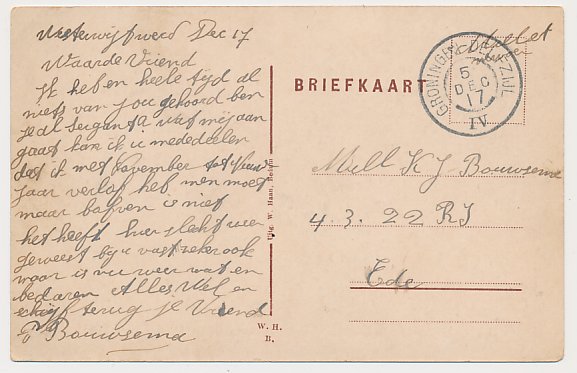 Westerwijtwerd Dec 17
Waarde Vriend
Ik heb en heele tijd al
niets van jou gehoord ben
je al sergant wat mij aan
gaat kan ik u mededeelen
dat ik met November tot
Jaar verlof heb men moet
maar bofven is niet
het heeft hier slecht weer
geweest bij u vast zeker ook
maar is nu weer wat en
bedaren Alles Wel en
schrijf terug je Vriend
Bouwsema
BRIEFKAART
GRONINGEN
5
DEC
17
IV
Mill K J Bouwsema
4.3.22 RI
Ede
Uitg. W. Haan, Bedum
W. H.
B.